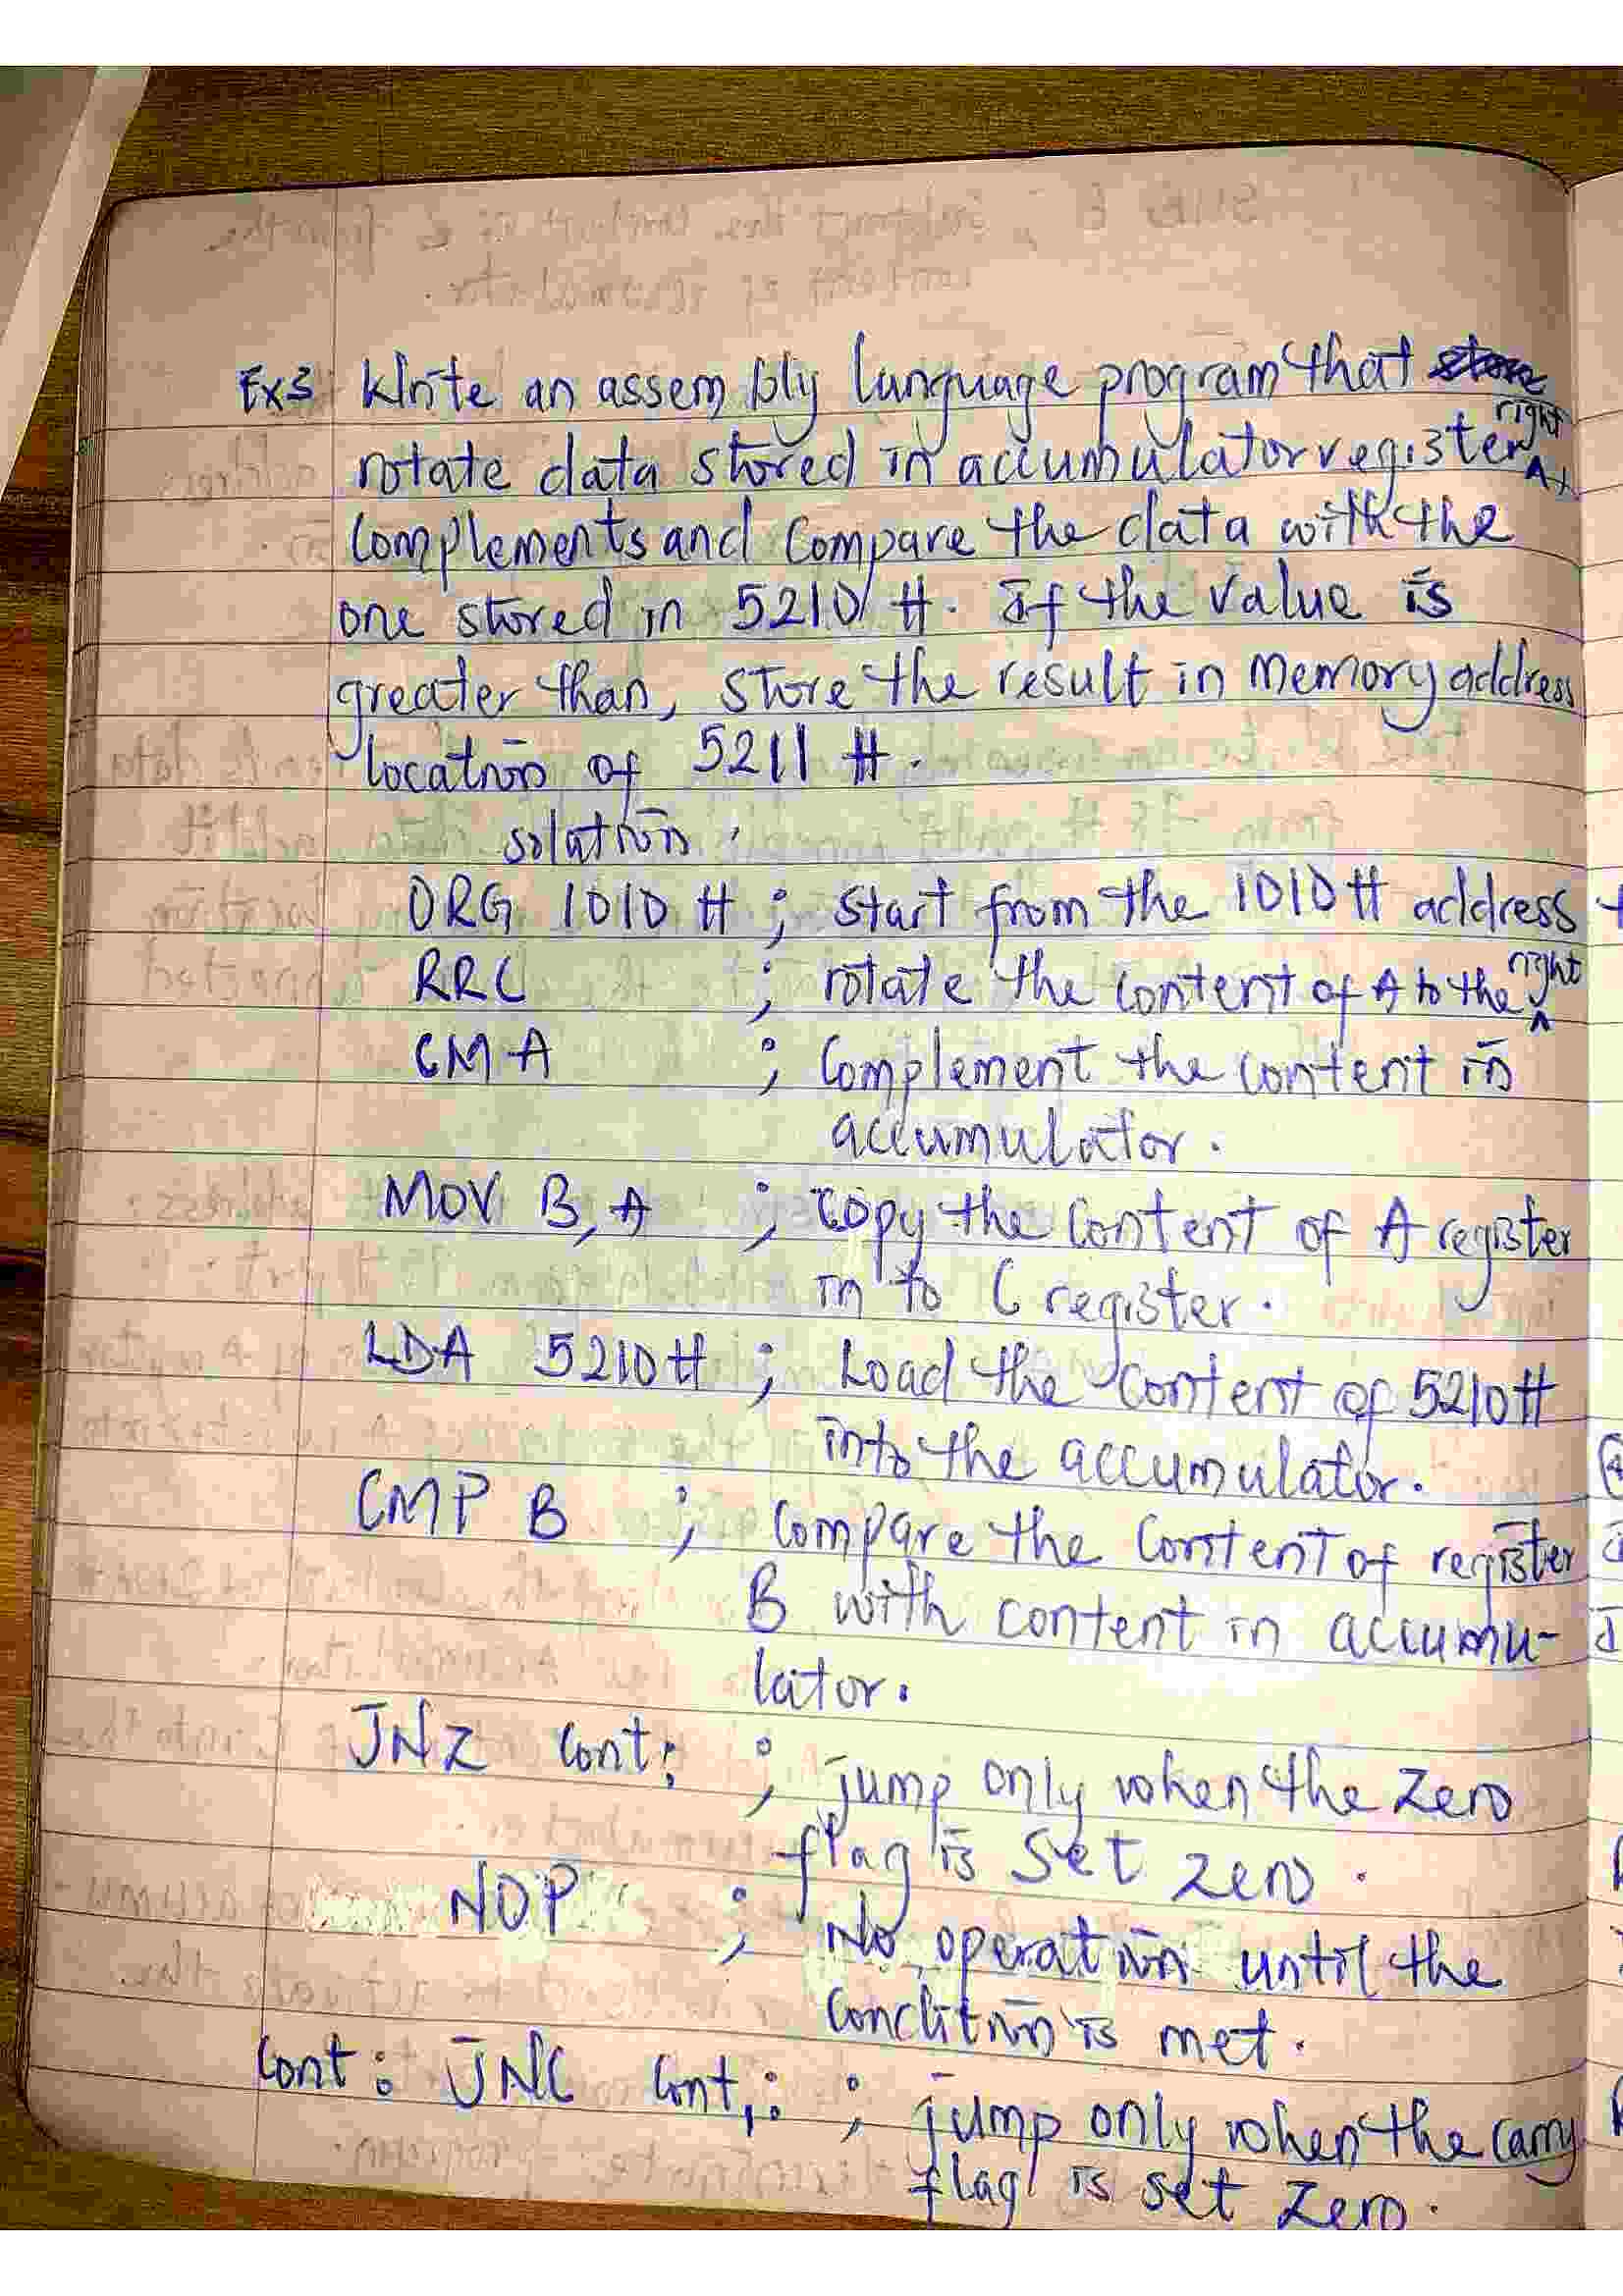 Ex3 Write an assembly language program that
rotate data stored in accumulator register right
complements and compare the data with the
one stored in 5210 H. If the value is
greater than, store the result in memory address
location of 5211 H.
solution.
ORG 1010 H ; start from the 1010 H address
RRC ; rotate the content of A to the right
CMA ; complement the content in
accumulator.
MOV B, A ; copy the content of A register
in to C register.
LDA 5210 H ; Load the content of 5210 H
into the accumulator.
CMP B ; compare the content of register
B with content in accumu-
lator.
JNZ Cont: ; jump only when the zero
flag is set zero.
NOP ; No operation until the
condition is met.
Cont: JNC Cont1: ; jump only when the carry
flag is set zero.